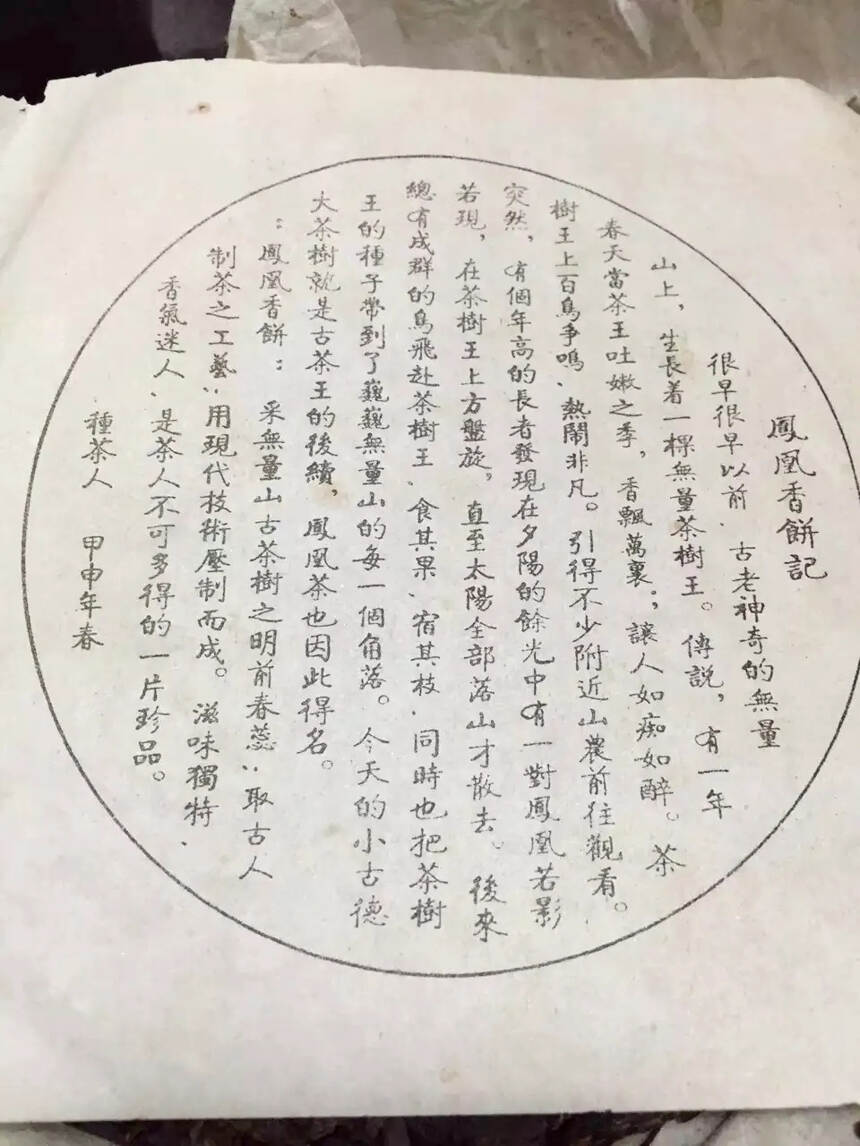 鳳凰香餅記
很早很早以前、古老神奇的無量
山上，生長着一棵無量茶樹王。傳説，有一年
春天當茶王吐嫩之季，香飄萬裏；讓人如痴如醉。茶
樹王上百鳥爭鳴、熱鬧非凡。引得不少附近山農前往觀看。
突然，有個年高的長者發現在夕陽的餘光中有一對鳳凰若影
若現，在茶樹王上方盤旋，直至太陽全部落山才散去。後來
總有成群的鳥飛赴茶樹王、食其果、宿其枝、同時也把茶樹
王的種子帶到了巍巍無量山的每一個角落。今天的小古德
大茶樹就是古茶王的後續，鳳凰茶也因此得名。
：鳳凰香餅：采無量山古茶樹之明前春蕊；取古人
制茶之工藝；用現代技術壓制而成。滋味獨特、
香氣迷人、是茶人不可多得的一片珍品。
種茶人 甲申年春